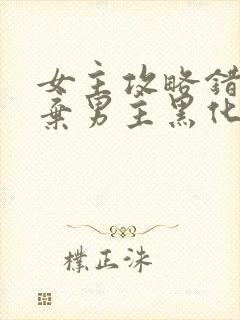 女主攻略错
弃男主黑化
樸正洙